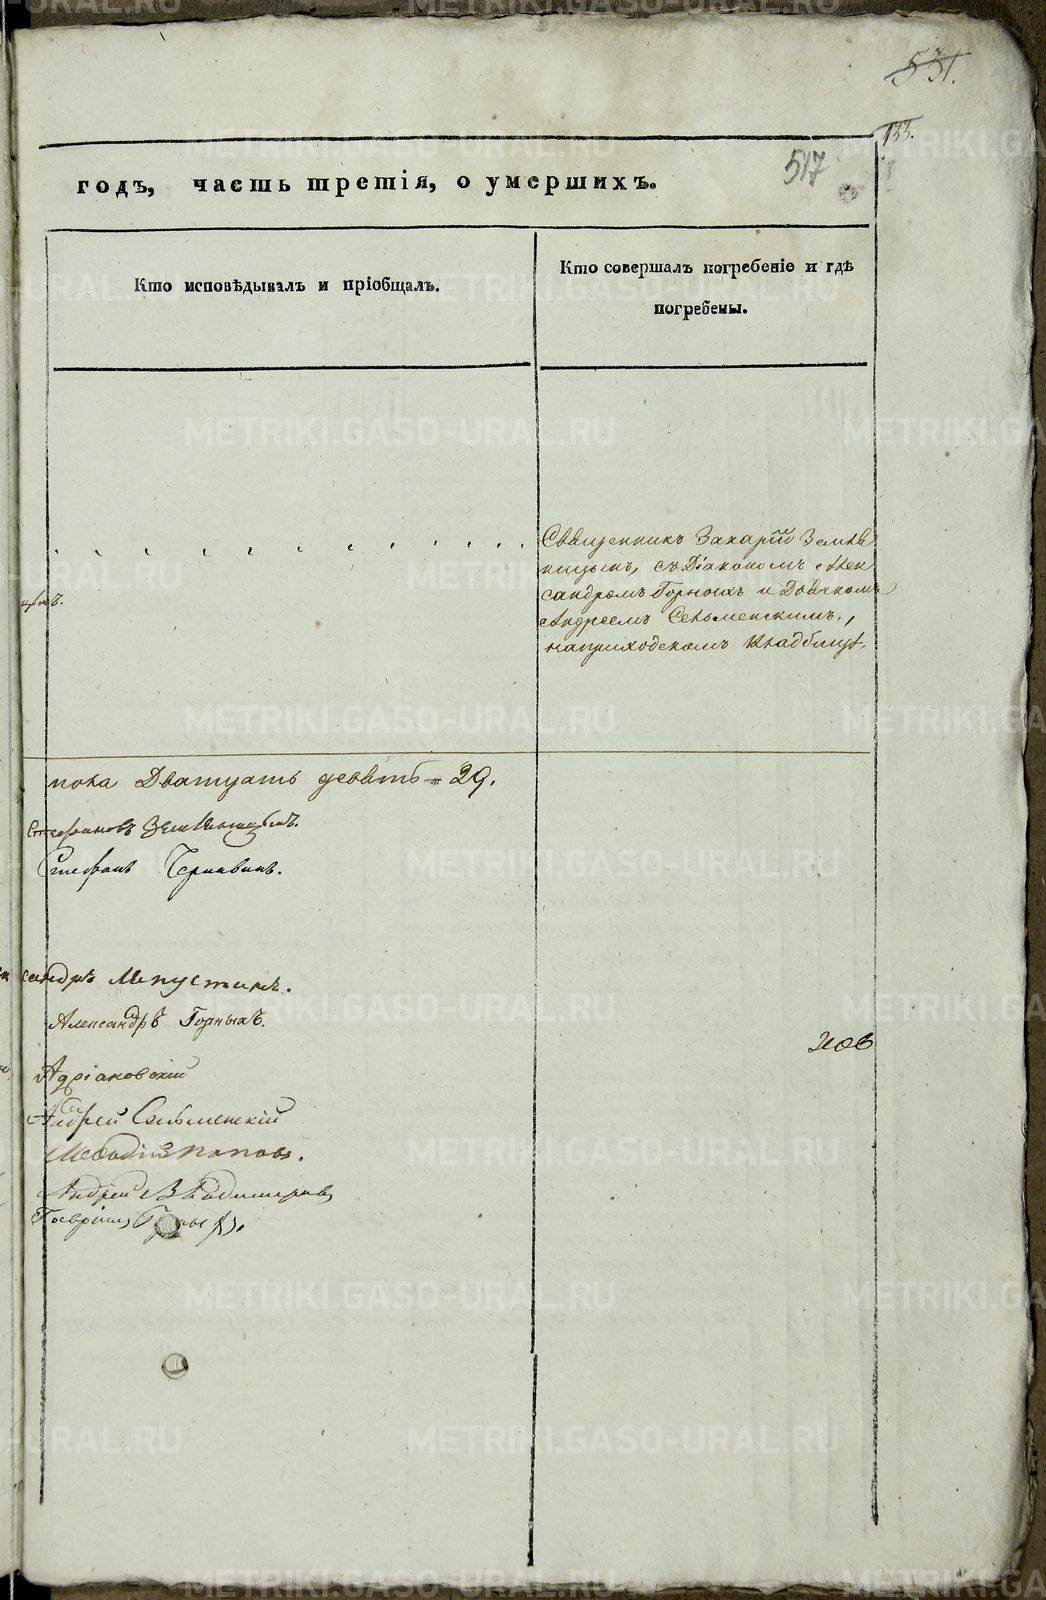 531.
133.
517
годъ, часть третія, о умершихъ.
Кто исповѣдывалъ и пріобщалъ.
Кто совершалъ погребеніе и гдѣ
погребены.
Священникъ Захарій Земля
ницынъ, съ Діакономъ Алек
сандромъ Горныхъ и Дьячкомъ
Андреемъ Сельменскимъ,
на приходскомъ кладбищѣ.
пола Дватцать девять = 29.
Стефанъ
сандръ
Александръ Горныхъ.
Адріановскій
Андрей Сельменскій
Меѳодій Поповъ.
Андрей Владимировъ
Гавріилъ
METRIKI.GASO-URAL.RU